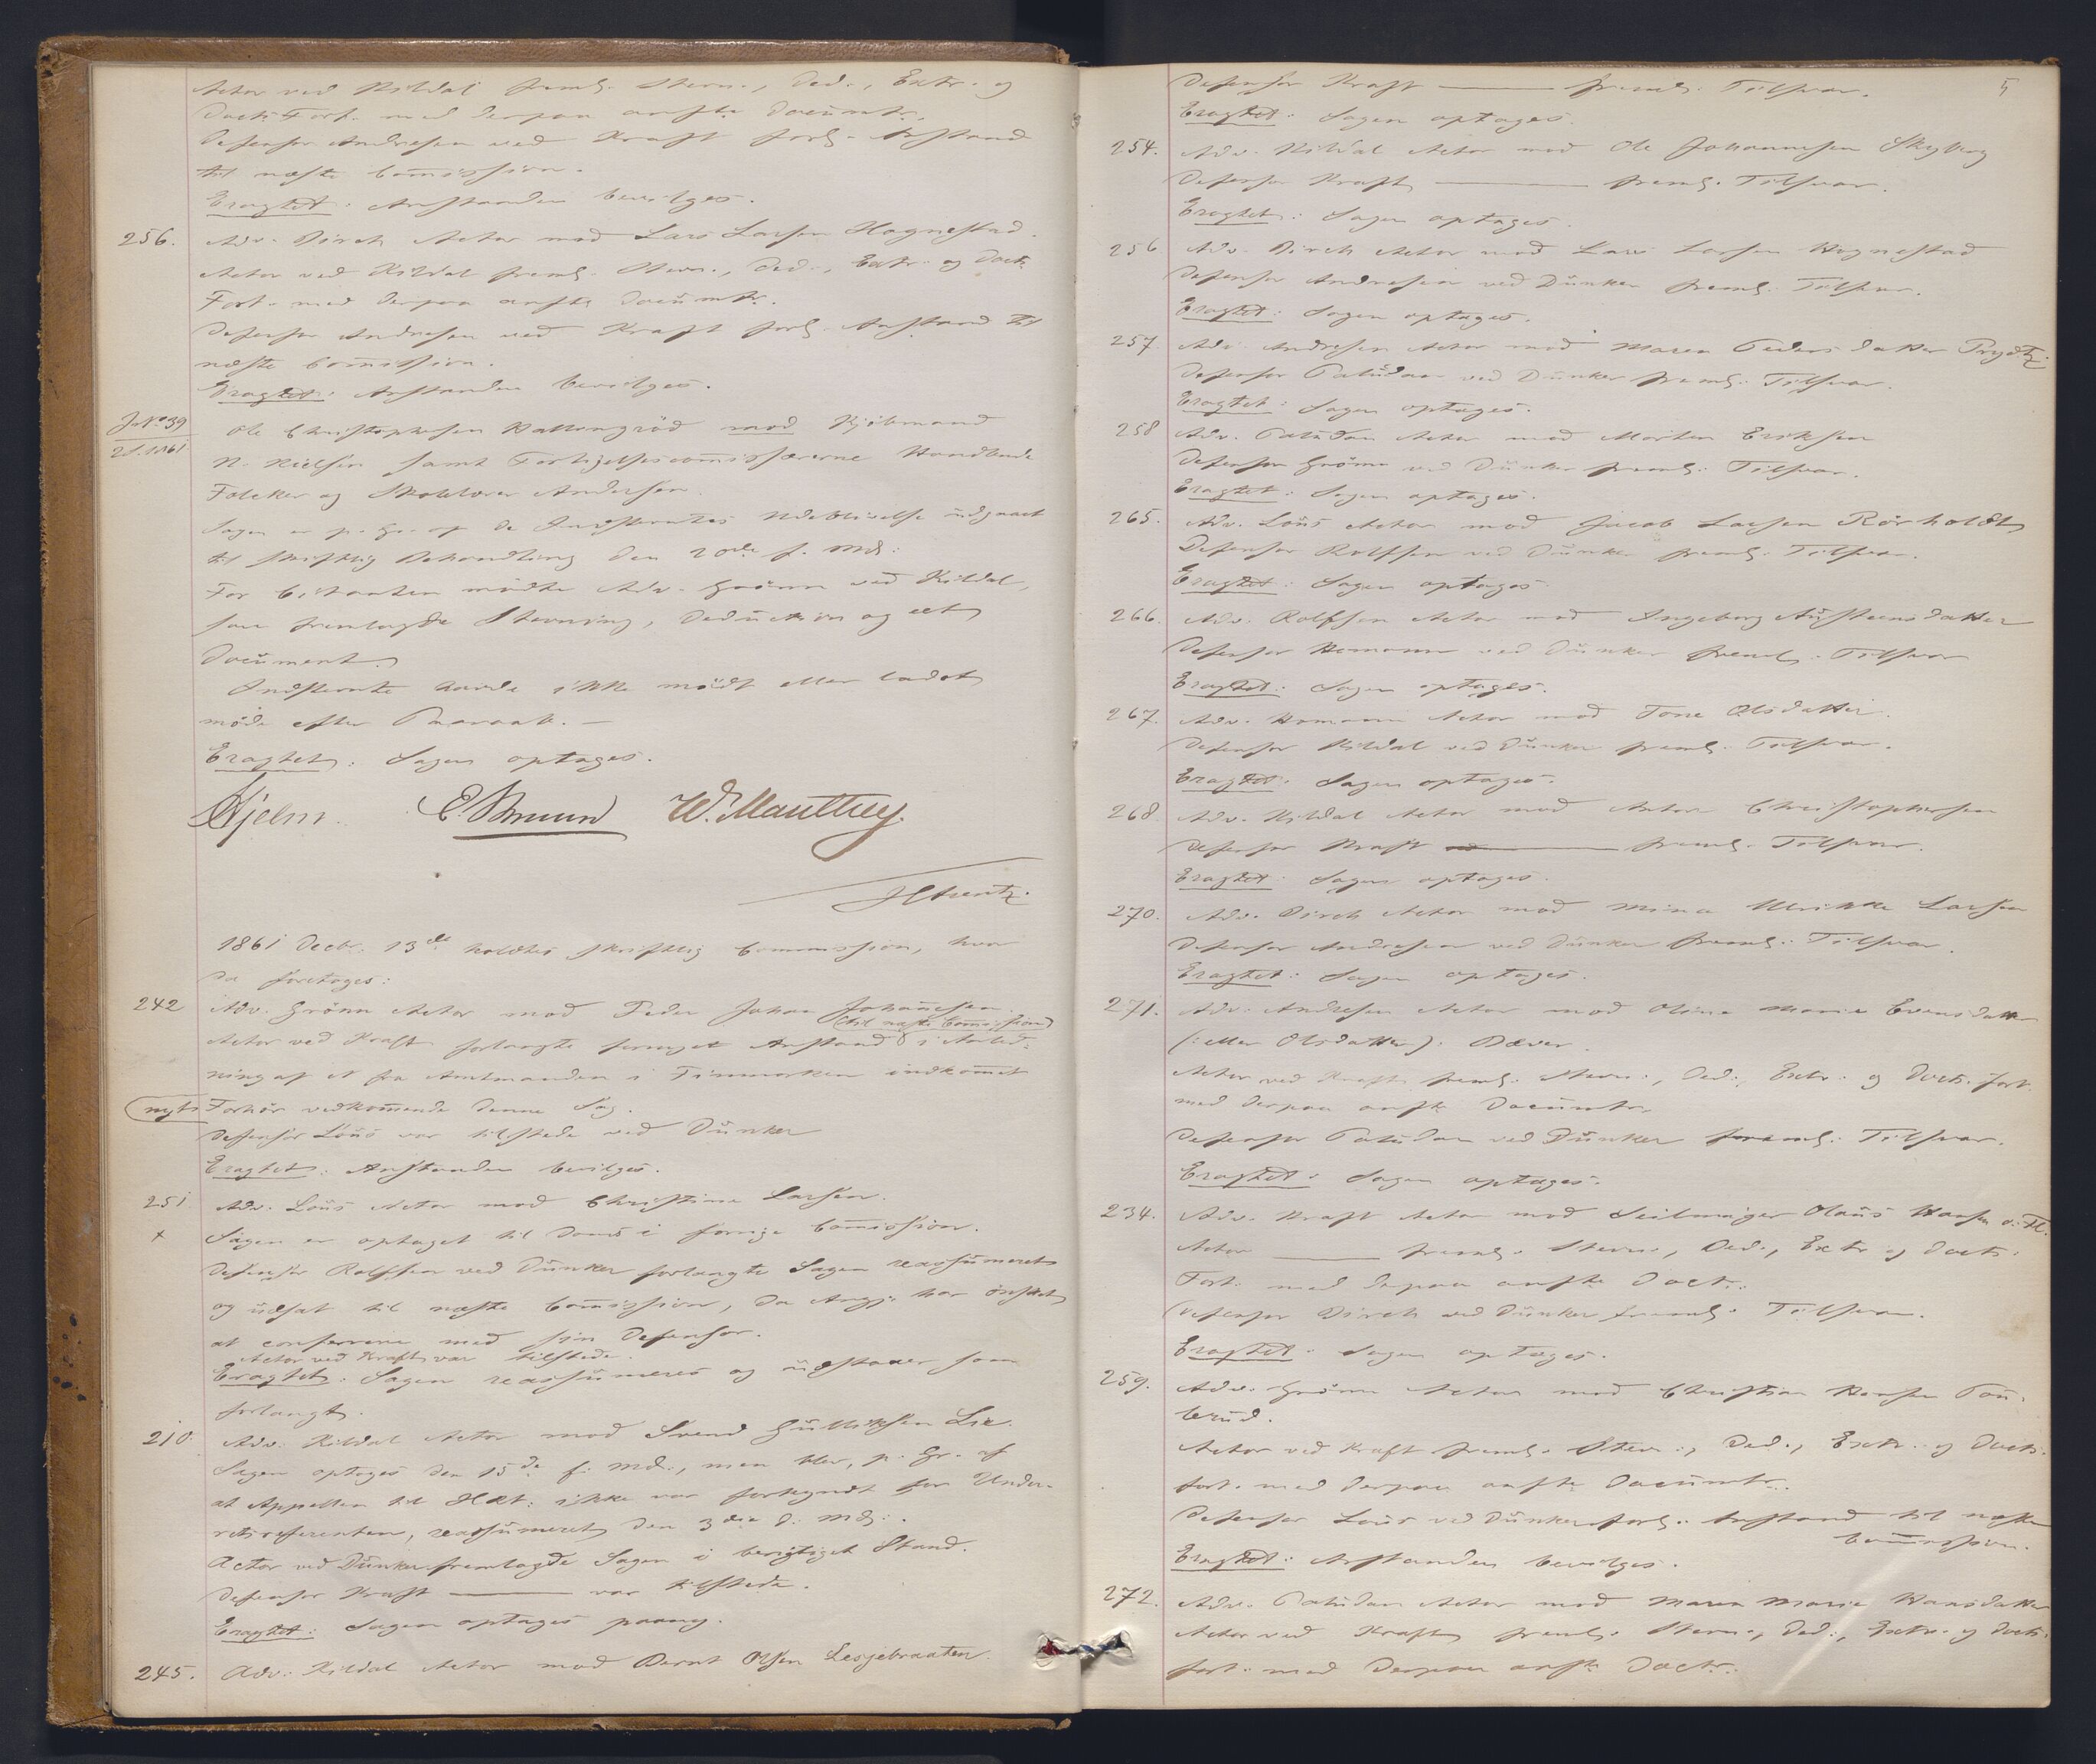 Actor ved Kildal freml. Stevn., Ded., Extr. og
Doct: Fort. med derpaa anførte Documtr.
Defensor Andresen ved Kraft forl. Anstand
til næste Comission.
Eragtet: Anstanden bevilges.
256. Adv. Birch Actor mod Lars Larsen Hognestad.
Actor ved Kildal freml. Stevn., Ded., Extr. og Doct:
Fort. med derpaa anførte Documtr.
Defensor Andresen ved Kraft forl. Anstand til
næste Comission.
Eragtet: Anstanden bevilges.
J. No 39 Ole Christophersen mod Kjøbmand
N. Nielsen samt Forligelsescomissærerne
Fo og Andersen.
Sagen er p. Gr. af de Indstevntes Udeblivelse udgaaet
til skriftlig Behandling den 20de f. Md:
For Citanten mødte Adv. Grönn ved Kildal,
som fremlagde Stevning, Deduction og et
Document.
Indstevnte havde ikke mödt eller ladet
möde efter Paaraab. —
Eragtet: Sagen optages.
Hjelm. E. Bruun W. Manthey.
1861 Decbr. 13de holdtes skriftlig Commission, hvor
da foretoges:
242 Adv. Grönn Actor mod Peder Johan Johannesen.
(til næste Comission)
Actor ved Kraft forlangte fornyet Anstand i Anled-
ning af et fra Amtmanden i Finmarken indkomet
nyt Forhör vedkomende denne Sag.
Defensor Lous var tilstede ved Dunker
Eragtet: Anstanden bevilges.
251 Adv. Lous Actor mod Christine Larsen.
x Sagen er optaget til Doms i forrige Comission.
Defensor Rolfsen ved Dunker forlangte Sagen reassumeret
og udsat til næste Comission, da Angj. har önsket
at conferere med sin Defensor.
Actor ved Kraft var tilstede.
Eragtet: Sagen reassumeres og udstaaer som
forlangt.
210. Adv. Kildal Actor mod Svend Gulliksen Lie.
Sagen optoges den 15de f. Md., men blev, p. Gr. af
at Appellen til Hæt: ikke var forkyndt for Under-
retsreferenten, reassumeret den 3die d. Md.
Actor ved Dunker fremlagde Sagen i berigtiget Stand.
Defensor Kraft — var tilstede.
Eragtet: Sagen optages paany.
245. Adv. Kildal Actor mod Bernt Olsen Lesjebraaten.
5
Defensor Kraft — freml. Tilsvar.
Eragtet: Sagen optages.
254. Adv. Kildal Actor mod Ole Johannesen
Defensor Kraft — freml. Tilsvar.
Eragtet: Sagen optages.
256 Adv. Birch Actor mod Lars Larsen Hognestad
Defensor Andresen ved Dunker freml. Tilsvar.
Eragtet: Sagen optages.
257. Adv. Andresen Actor mod Maren Pedersdatter Prydtz.
Defensor Paludan ved Dunker freml. Tilsvar.
Eragtet: Sagen optages.
258 Adv. Paludan Actor mod Morten Eriksen
Defensor Grönn ved Dunker freml. Tilsvar.
Eragtet: Sagen optages.
265. Adv. Lous Actor mod Jacob Larsen Rörholdt
Defensor Rolfsen ved Dunker freml. Tilsvar.
Eragtet: Sagen optages
266. Adv. Rolfsen Actor mod Ingeborg Austeensdatter
Defensor Homann ved Dunker freml. Tilsvar
Eragtet: Sagen optages.
267. Adv. Homann Actor mod Tone Olsdatter.
Defensor Kildal ved Dunker freml. Tilsvar.
Eragtet: Sagen optages.
268. Adv. Kildal Actor mod Anton Christophersen
Defensor Kraft — freml. Tilsvar.
Eragtet: Sagen optages.
270. Adv. Birch Actor mod Mina Ulrikke Larsen
Defensor Andresen ved Dunker freml. Tilsvar.
Eragtet: Sagen optages.
271. Adv. Andresen Actor mod Oline Marie Evensdatter
(: eller Olsdatter) Bæver.
Actor ved Kraft freml. Stevn., Ded., Extr. og Doct. fort.
med derpaa anførte Documtr.
Defensor Paludan ved Dunker freml. Tilsvar.
Eragtet: Sagen optages.
234. Adv. Kraft Actor mod Seilmager Olaus Hansen o. Fl.
Actor — freml. Stevn., Ded., Extr. og Doct.
Fort. med derpaa anførte Doctr.
Defensor Birch ved Dunker freml. Tilsvar.
Eragtet: Sagen optages.
259. Adv. Grönn Actor mod Christian Hansen Tou-
brud.
Actor ved Kraft freml. Stev., Ded., Extr. og Doct.
fort. med derpaa anførte Documtr.
Defensor Lous ved Dunker forl. Anstand til næste
Commission.
Eragtet: Anstanden bevilges.
272. Adv. Paludan Actor mod Maren Marie Hansdatter
Actor ved Kraft freml. Stevn., Ded., Extr. og Doct.
fort. med derpaa anførte Doctr.